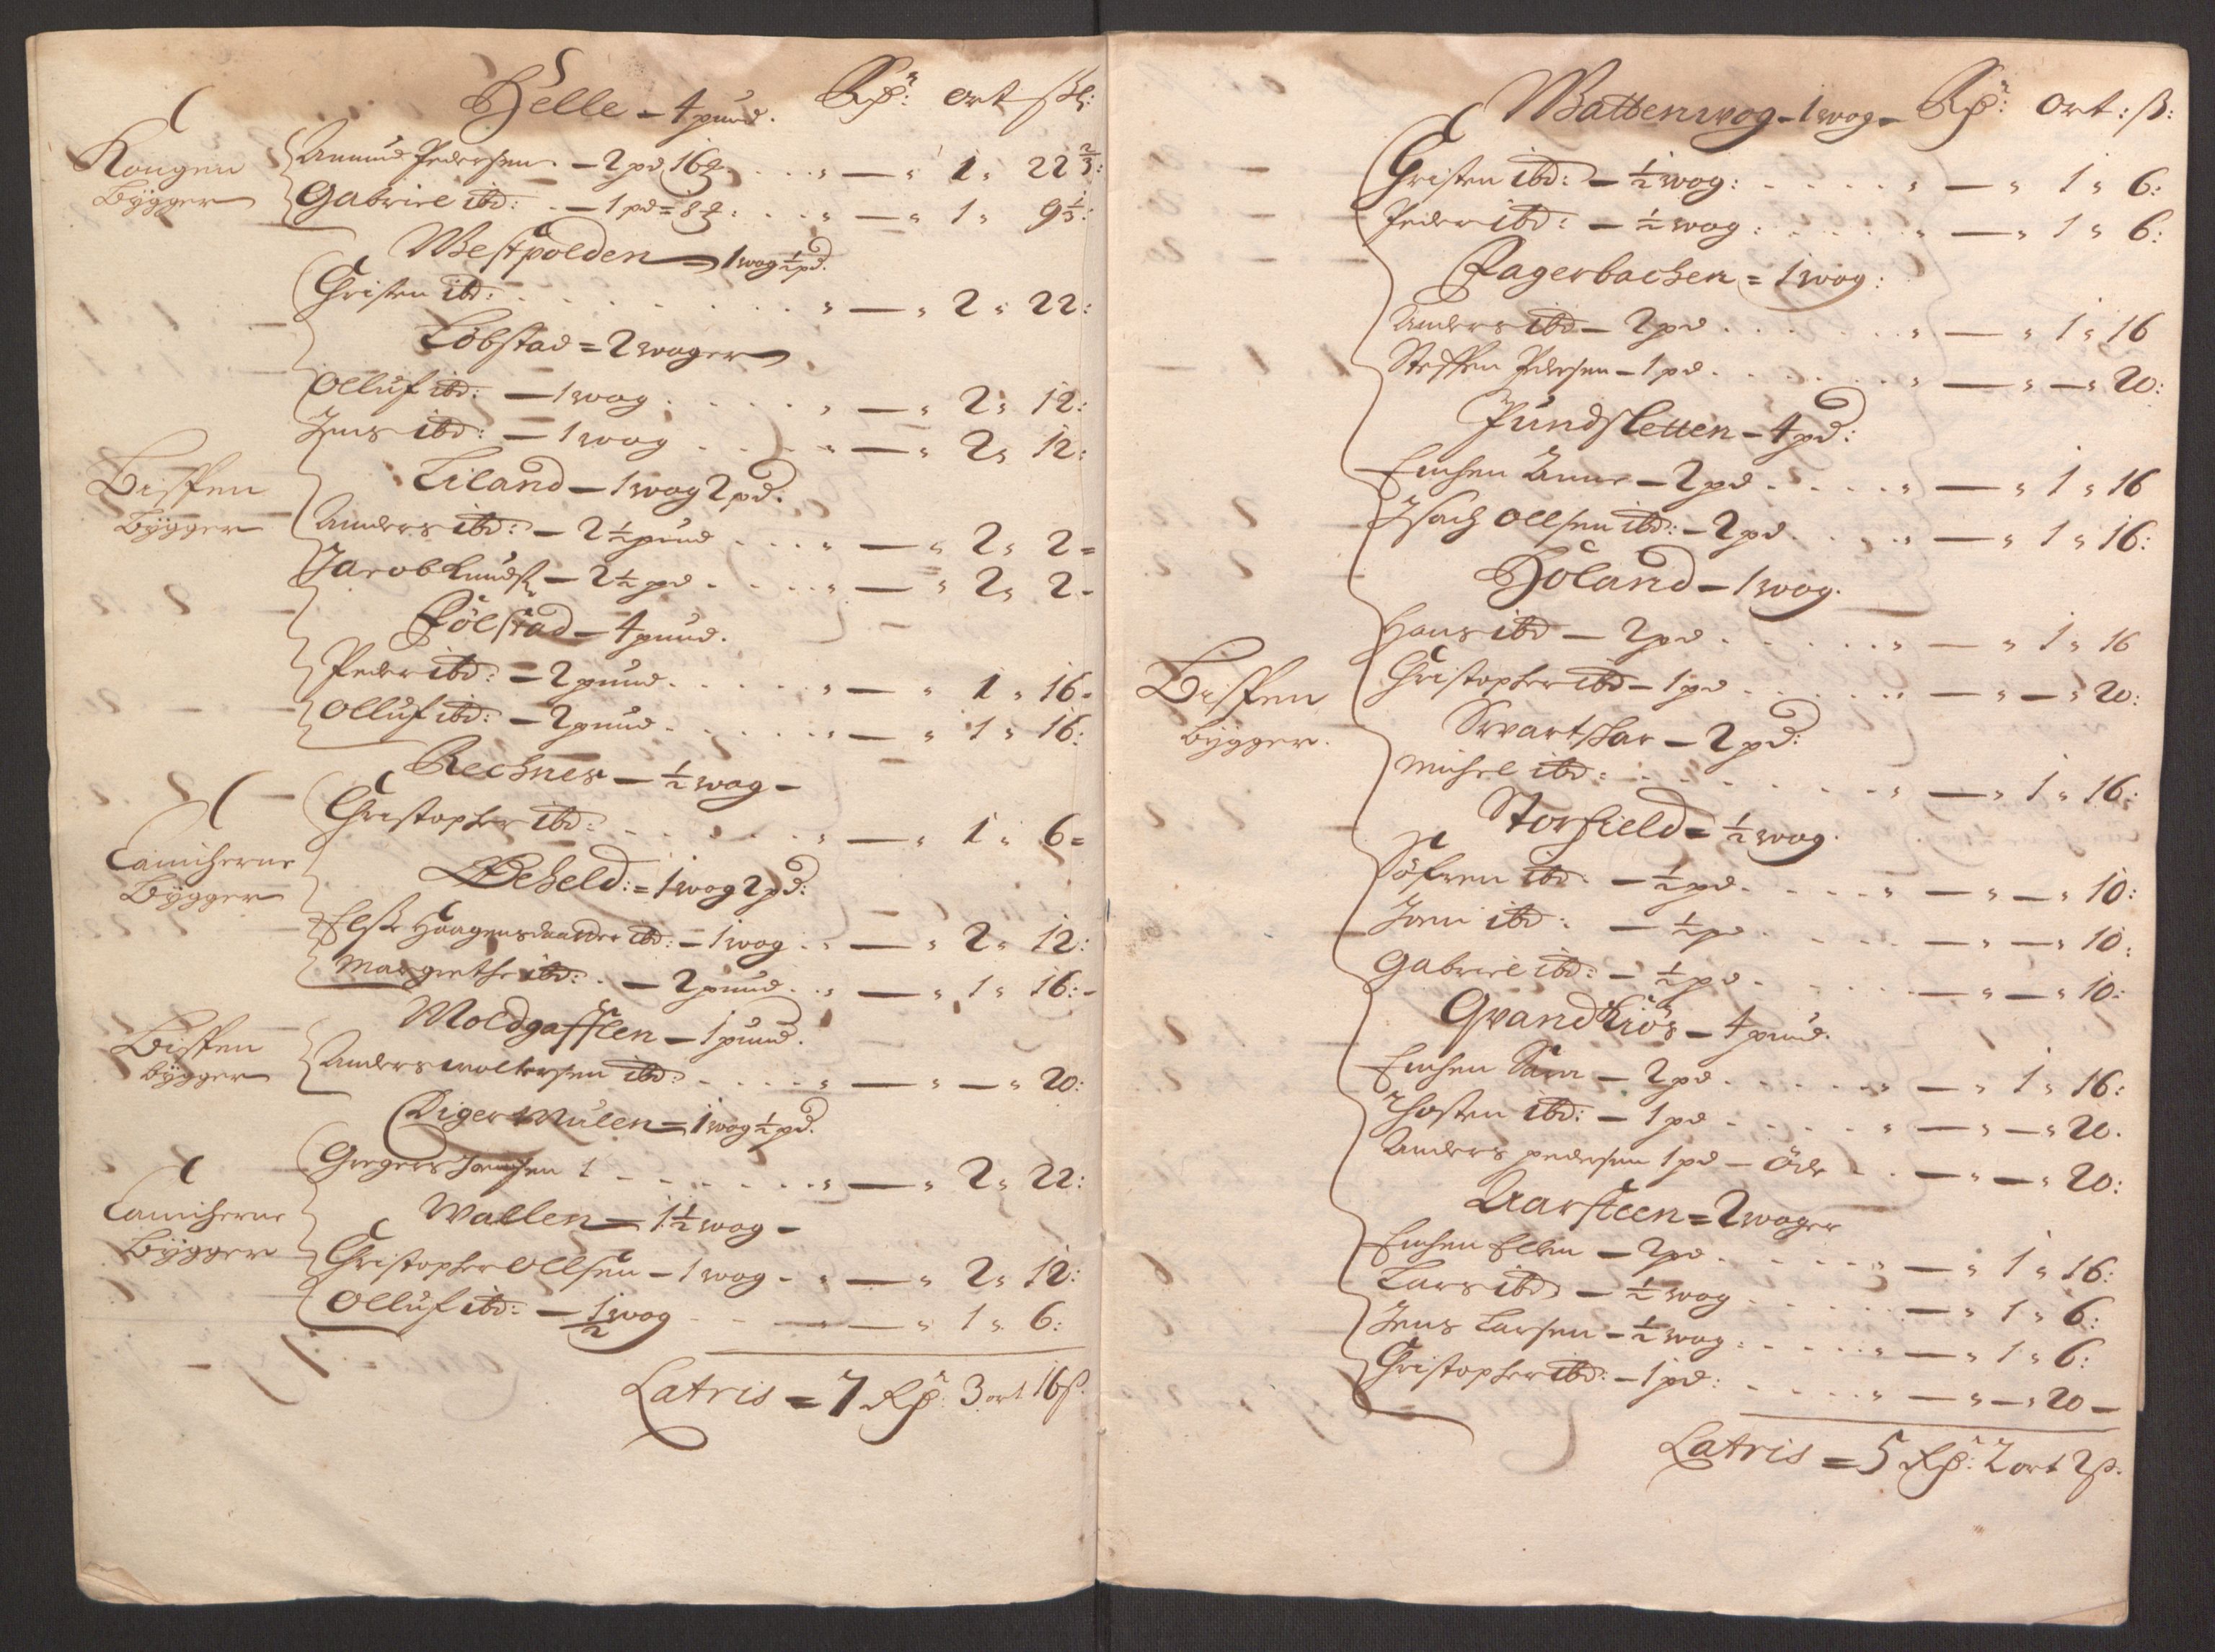 Helle – 4 pund. Rd: ort ſkl:
Kongen Bÿgger
Amund Pedersen – 2 pd 16 ℔ . . . „ — „ 1 „ 22 2/3:
Gabriel ibd: – 1 pd = 8 ℔: . . . „ — „ 1 „ 9 1/3:
Westpolden – 1 wog ½ pd.
Christen ibd: . . . . „ — „ 2 „ 22:
Lobstad = 2 woger
Olluf ibd: – 1 wog . . . . „ — „ 2 „ 12:
Jens ibd: – 1 wog . . . . „ — „ 2 „ 12:
Bispen Bÿgger
Liland – 1 wog 2 pd.
Anders ibd: – 2 ½ pund . . . „ — „ 2 „ 2 =
Jacob Knudſ: – 2 ½ pd . . . . „ — „ 2 „ 2 –
Fölstad – 4 pund.
Peder ibd: = 2 pund . . . . „ — „ 1 „ 16 –
Olluf ibd: – 2 pund . . . . „ — „ 1 „ 16:
Rechnes – ½ wog –
Christopher ibd: . . . . „ — „ 1 „ 6 =
Canicherne Bÿgger
Beheld: = 1 wog 2 pd:
Else Haagensdaatter ibd: – 1 wog . . — „ 2 „ 12:
Margrethe ibd: . – 2 pund . . „ — „ 1 „ 16: –
Moldgafflen – 1 pund.
Bispen bÿgger
Anders woltersen ibd: . . . . „ — „ — „ 20:
Digermulen = 1 wog ½ pd.
Gregers Jensen 1 . . . . „ — „ 2 „ 22:
Canicherne Bÿgger
Wallen = 1 ½ wog –
Christopher Ollsen – 1 wog – „ — „ 2 „ 12:
Olluf ibd: – ½ wog – — „ 1 „ 6:
Latris = 7 Rd: 3 ort 16 ß.
Wattenwog – 1 wog – Rd: Ort: ß:
Christen ibd: – ½ wog: . . . . „ — „ 1 „ 6:
Peder ibd: – ½ wog: . . . . „ — „ 1 „ 6:
Fagerbachen = 1 wog:
Anders ibd – 2 pd . . . . „ — „ 1 „ 16
Steffen Pedersen – 1 pd . . . . „ — „ — „ 20:
Pundsletten – 4 pd:
Enchen Anne – 2 pd . . . . „ — „ 1 „ 16
Isach Ollsen ibd: – 2 pd . . . „ — „ 1 „ 16:
Höland – 1 wog.
Hans ibd – 2 pd . . . . . „ — „ 1 „ 16
Christopher ibd – 1 pd . . . . „ — „ — „ 20:
Bispen Bÿgger.
Swartskar – 2 pd:
Michel ibd: . . . . . „ — „ 1 „ 16:
Storfield = ½ wog.
Söfren ibd. – ½ pd . . . . „ — „ — „ 10:
Joen ibd: – ½ pd . . . . — „ — „ 10:
Gabriel ibd: – ½ pd . . . . — „ — „ 10:
Qvandkiös – 4 pund.
Enchen Sara – 2 pd . . . . . „ — „ 1 „ 16:
Thosten ibd: – 1 pd . . . . „ — „ — „ 20.
Anders pedersen 1 pd – Öde . . — „ — „ 20:
Aarsteen = 2 woger
Enchen Ellen – 2 pd . . . . „ — „ 1 „ 16:
Lars ibd – ½ wog . . . . — „ 1 „ 6:
Jens Larsen – ½ wog: . . . . „ — „ 1 „ 6:
Christopher ibd: – 1 pd: . . . . „ — „ — „ 20 –
Latris = 5 Rd: 2 ort 2 ß.